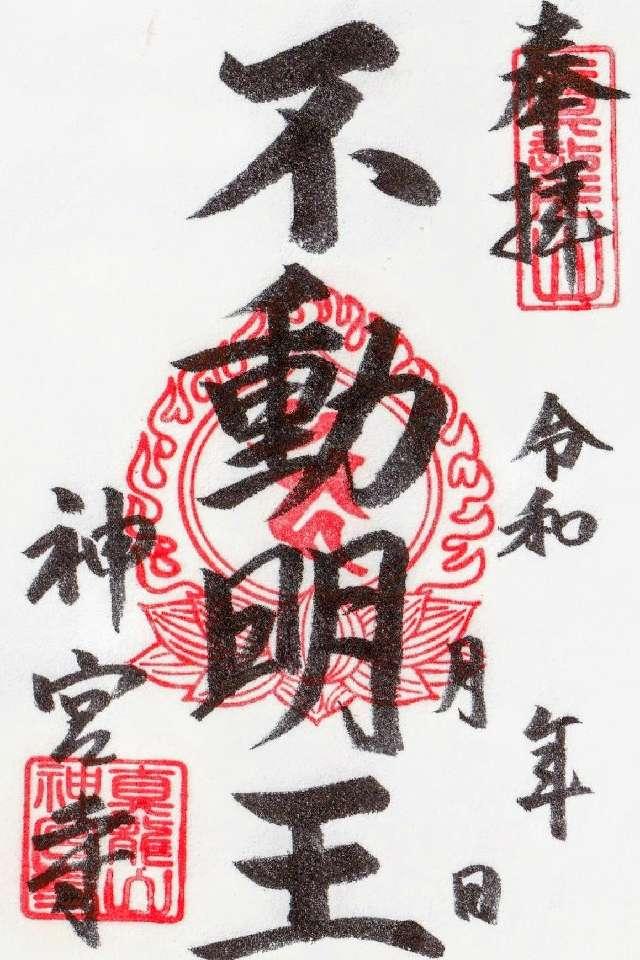 奉拝
令和 年
月 日
不動明王
神宮寺
真龍山
真龍山
神宮寺